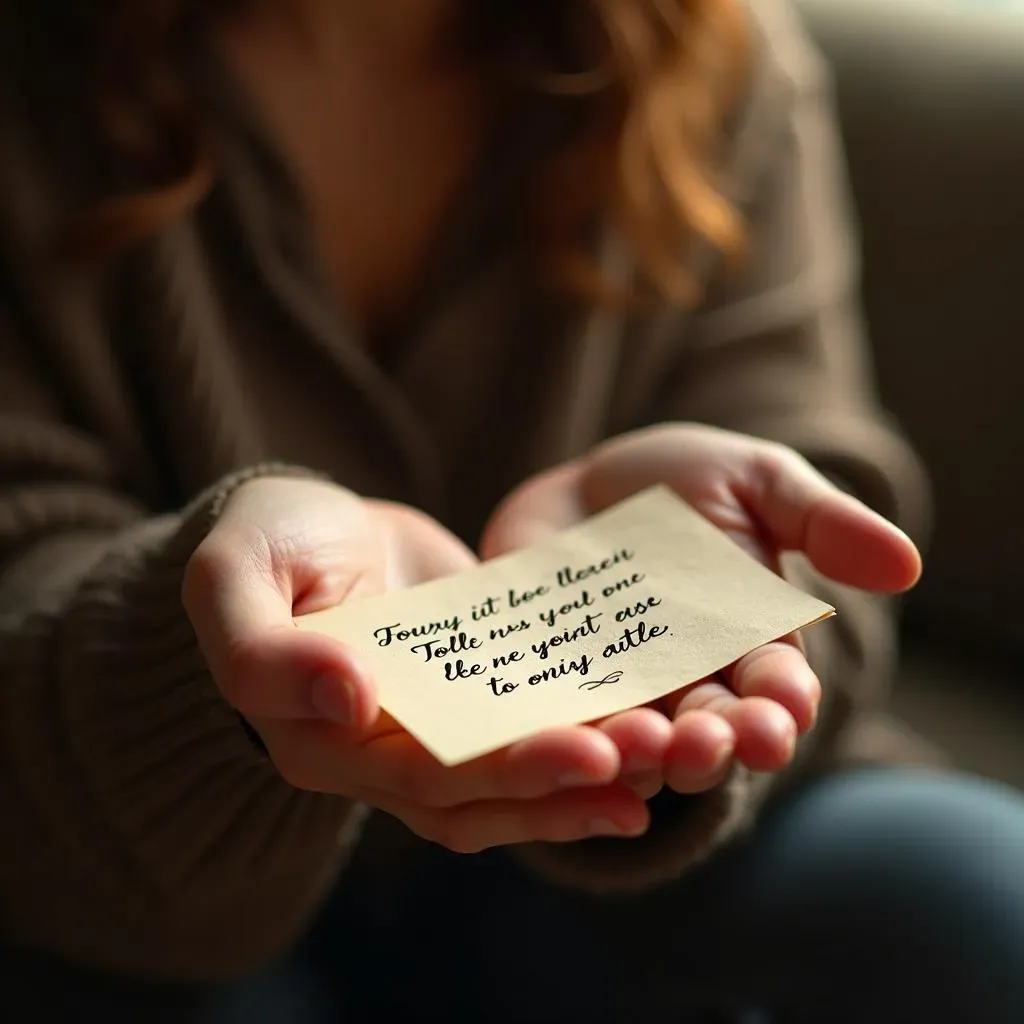 Fouwy iit boe lleren
Tolle nws youl one
lke ne yoint case
to oniy autle.